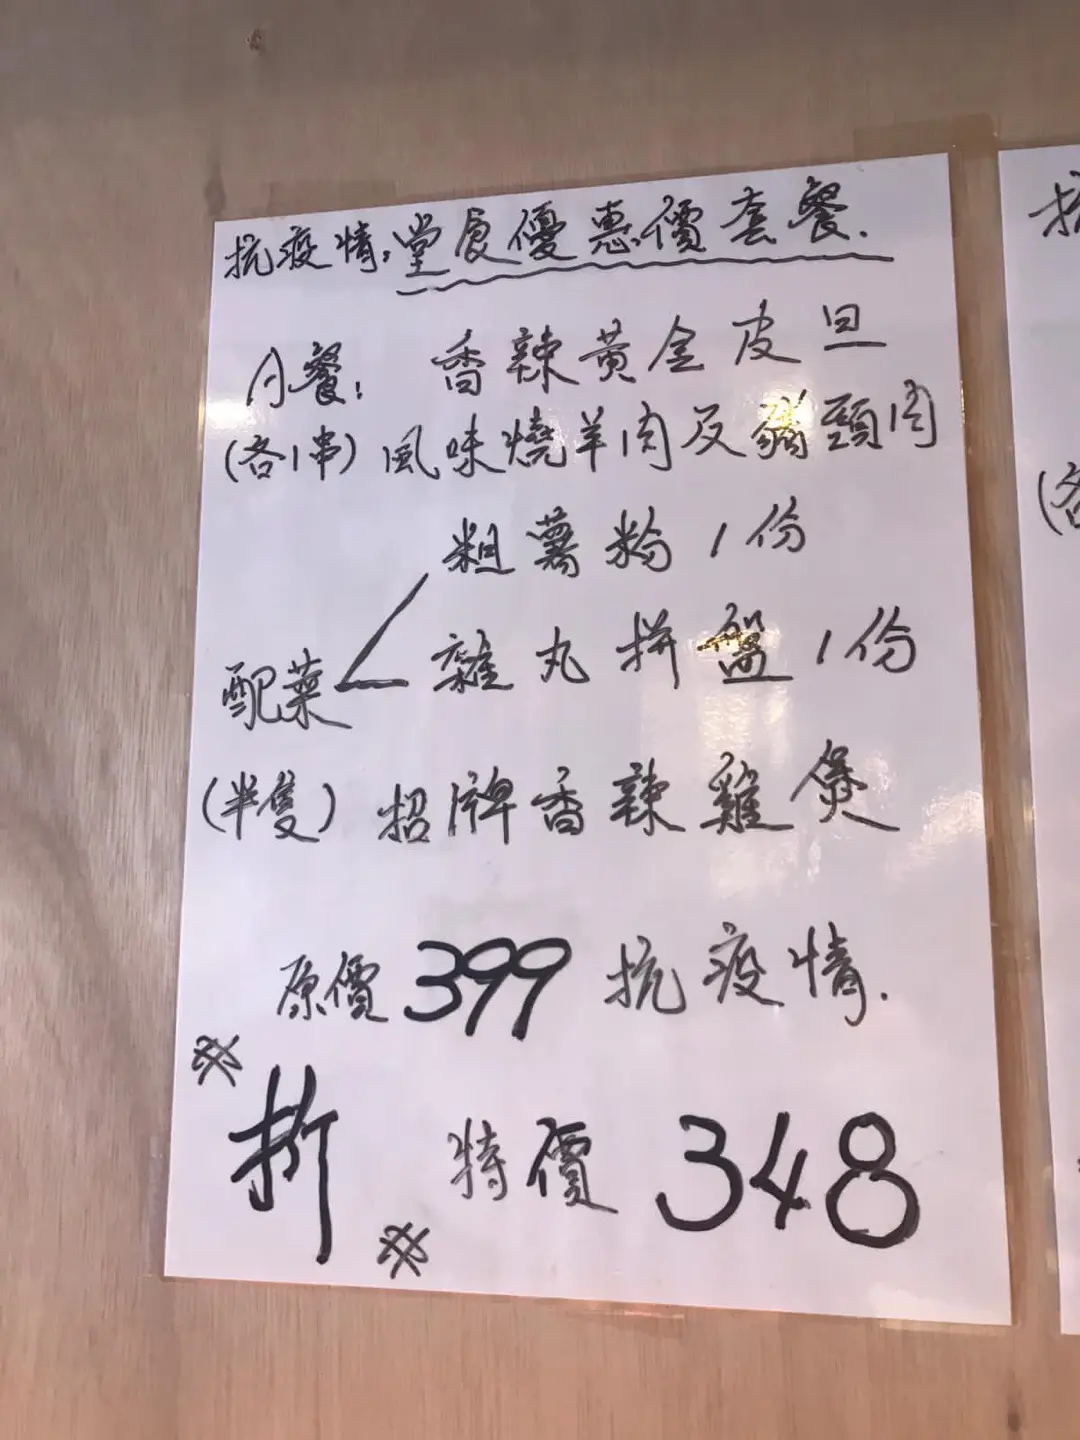 抗疫情:堂食優惠價套餐.
A餐: 香辣黃金皮旦
(各1串) 風味燒羊肉及豬頸肉
粗薯粉1份
配菜 雜丸拼盤1份
(半隻) 招牌香辣雞煲
原價399抗疫情.
折 特價348
抗
(各